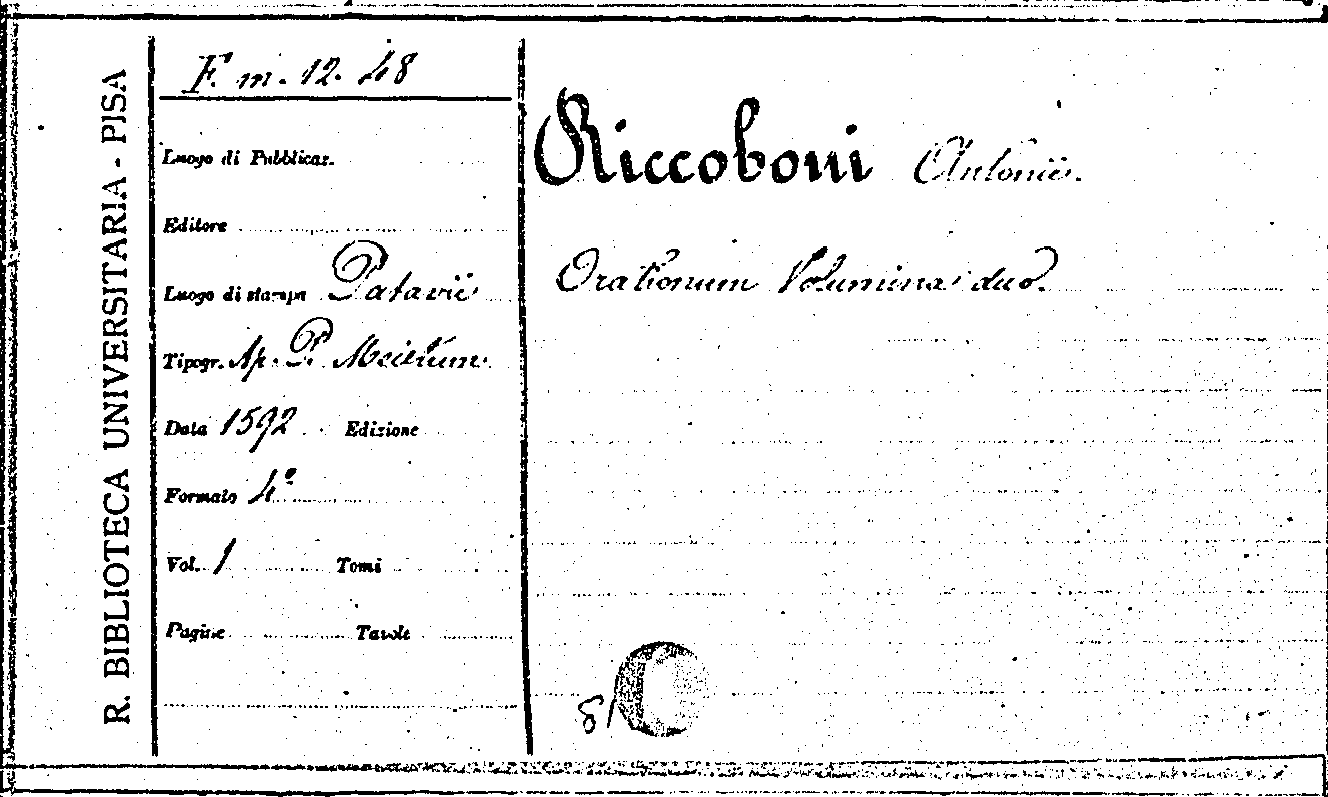 R. BIBLIOTECA UNIVERSITARIA - PISA
F. m. 12. 48
Luogo di Pubblicaz.
Editore
Luogo di stampa Patavii
Tipogr. Ap. P. Meietum
Data 1592 Edizione
Formato 4º
Vol. 1 Tomi
Pagine Tavole
Riccoboni Antonii.
Orationum Volumina duo.